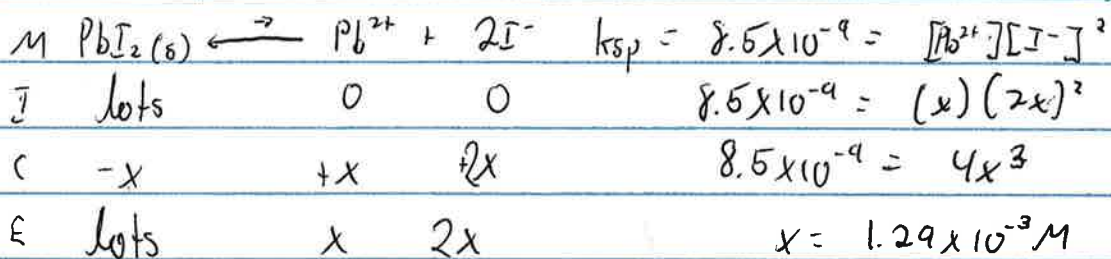 M PbI₂(s) ⇄ Pb²⁺ + 2I⁻ ksp = 8.5x10⁻⁹ = [Pb²⁺][I⁻]²
I lots 0 0 8.5x10⁻⁹ = (x)(2x)²
C -x +x +2x 8.5x10⁻⁹ = 4x³
E lots x 2x x = 1.29x10⁻³ M